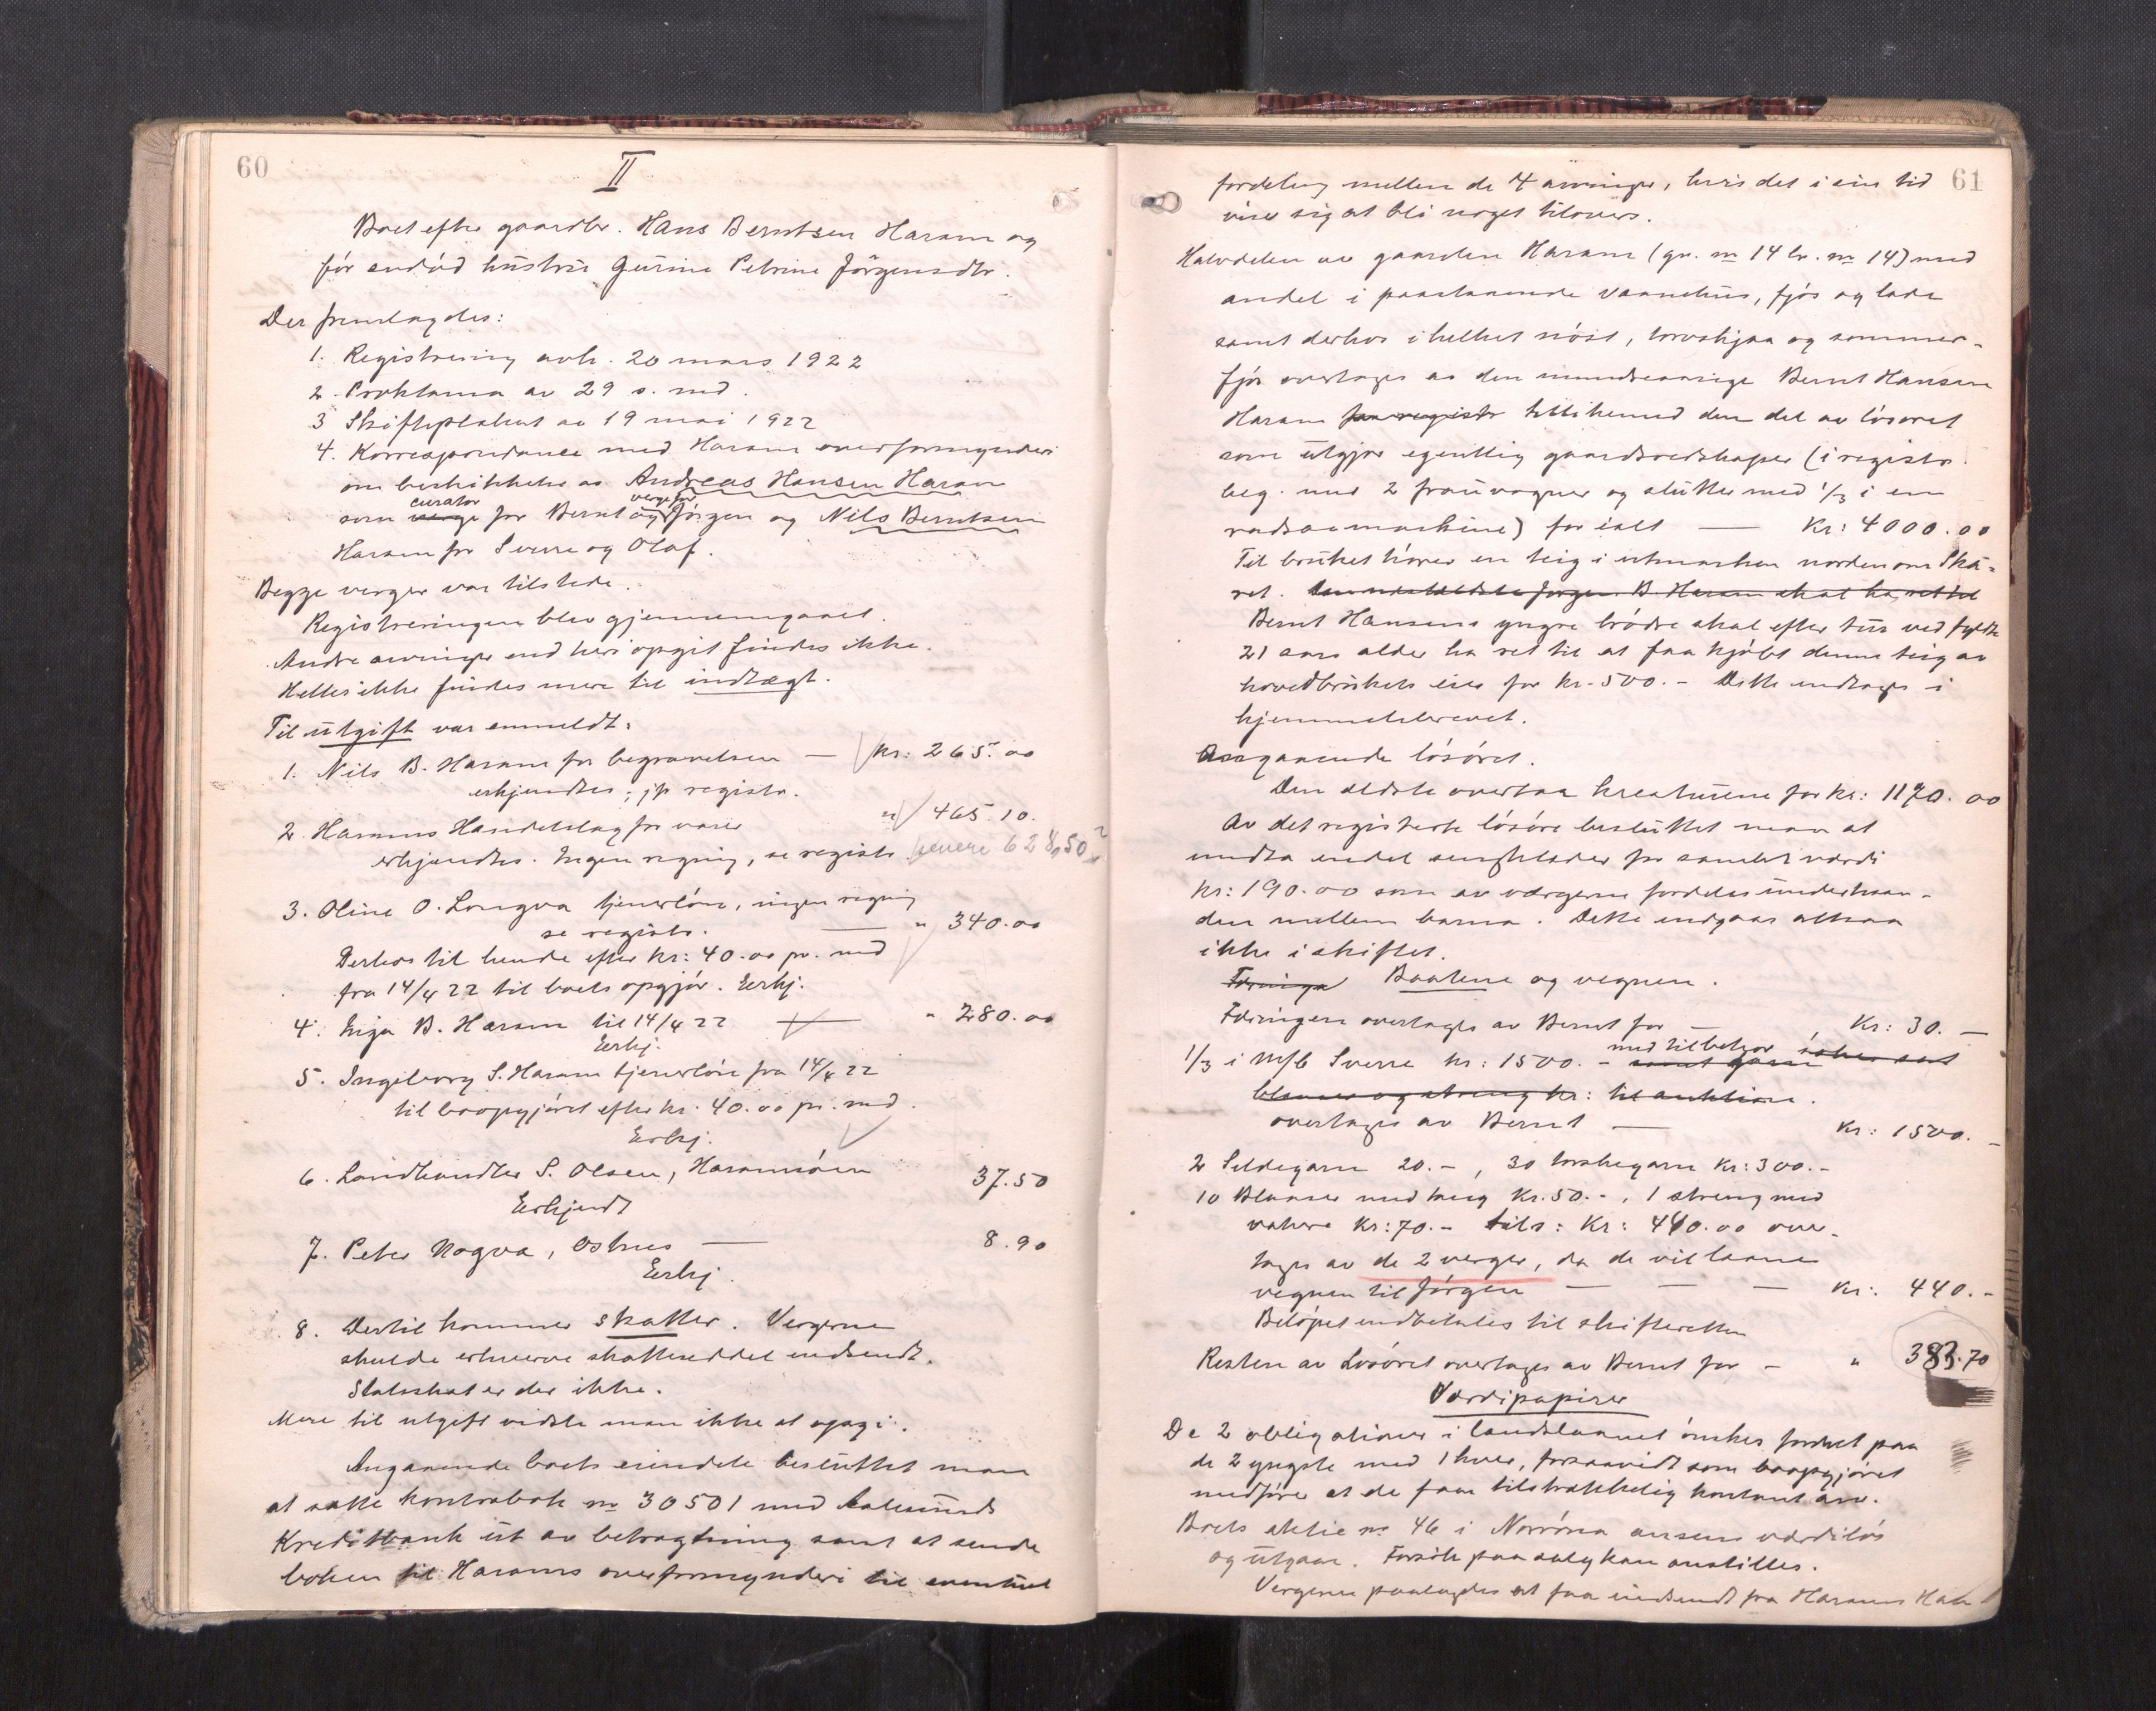 60
II
Boet efter gaardbr. Hans Berntsen Haram og
før avdød hustru Gurine Petrine Jørgensdtr.
Der fremlagdes:
1. Registrering avh. 20 mars 1922
2. Proklama av 29 s. md.
3 Skifteplakat av 19 mai 1922
4. Korrespondance med Haram overformynderi
om beskikkelse av Andreas Hansen Haram
curator verge for
som verge for Bernt og Jørgen og Nils Berntsen
Haram for Sverre og Olaf.
Begge verger var tilstede.
Registreringen blev gjennemgaaet.
Andre arvinger end heri opgit findes ikke.
Heller ikke findes mere til indtægt.
Til utgift var anmeldt:
1. Nils B. Haram for begravelsen — kr: 265.00
erkjendtes; jfr registr.
2. Harams Handelslag for varer " 465.10.
erkjendtes. Ingen regning, se registr. senere 628,50?
3. Oline O. Longva tjenerløn, ingen regning
se registr. — " 340.00
Derhos til hende efter kr: 40.00 pr. md
fra 14/4 22 til boets opgjør. Erkj.
4. Inga B. Haram til 14/4 22 — " 280.00
Erkj.
5. Ingeborg S. Haram tjenerløn fra 14/4 22
til boopgjøret efter kr. 40.00 pr. md.
Erkj.
6. Landhandler S. Olsen, Haramsøen 37.50
Erkjendt
7. Peter Rogva, Østnes — 8.90
Erkj.
8. Dertil kommer skatter. Vergerne
skulde erhverve skatteseddel indsendt.
Statsskat er der ikke.
Mere til utgift vidste man ikke at opgi.
Angaaende boets eiendele besluttet man
at sætte kontrabok no 30501 med Aalesunds
Kreditbank ut av betragtning samt at sende
boken til Harams overformynderi til eventuel
61
fordeling mellem de 4 arvinger, hvis det i sin tid
viser sig at bli noget tilovers.
Halvdelen av gaarden Haram (gr. no 14 br. no 14) med
andel i paastaaende vaanehus, fjøs og lade
samt derhos i helhet nøst, torvskjaa og sommer-
fjøs overtages av den mindreaarige Bernt Hansen
Haram for registr tillikemed den del av løsøret
som utgjør egentlig gaardsredskaper (i registr.
beg. med 2 fraüvogner og slutter med 1/3 i en
radsaamaskine) for ialt — Kr: 4000.00
Til bruket hører en teig i utmarken nordenom Skå-
ret. Den næstældste Jørgen B. Haram skal ha ret til
Bernt Hansens yngre brødre skal efter tur ved fyldte
21 aars alder ha ret til at faa kjøbt denne teig av
hovedbrukets eier for kr. 500.- Dette indtages i
hjemmelsbrevet.
Angaaende løsøret.
Den ældste overtar kreaturene for kr: 1170.00
Av det registrerte løsøre besluttet man at
undta endel sengklæder for samlet værdi
kr: 190.00 som av vergerne fordeles underhaan-
den mellem barna. Dette indgaar altsaa
ikke i skiftet.
Færinga Baatene og vegnen.
Færingen overtages av Bernt for — Kr: 30.—
med tilbehør
1/3 i M/b Sverre kr: 1500.- samt garn
blaaser og streng kr: til auktion.
overtages av Bernt — Kr: 1500.-
2 Sildegarn 20.-, 30 torskegarn kr: 300.-
10 Blaaser med tang Kr. 50.-, 1 streng med
vakere kr: 70.- tils: Kr: 440.00 over-
tages av de 2 verger, da de vil laane
vegnen til Jørgen — — — Kr: 440.-
Beløpet indbetales til skifteretten
Resten av Løsøret overtages av Bernt for - " 383.70
Værdipapirer
De 2 obligationer i landslaanet ønskes fordelt paa
de 2 yngste med 1 hver, forsaavidt som boopgjøret
medfører at de faar tilstrækkelig kontant arv.
Boets aktie no 46 i Norrøna ansees værdiløs
og utgaar. Forsøk paa salg kan anstilles.
Vergerne paalagdes at faa indsendt fra Harams Han